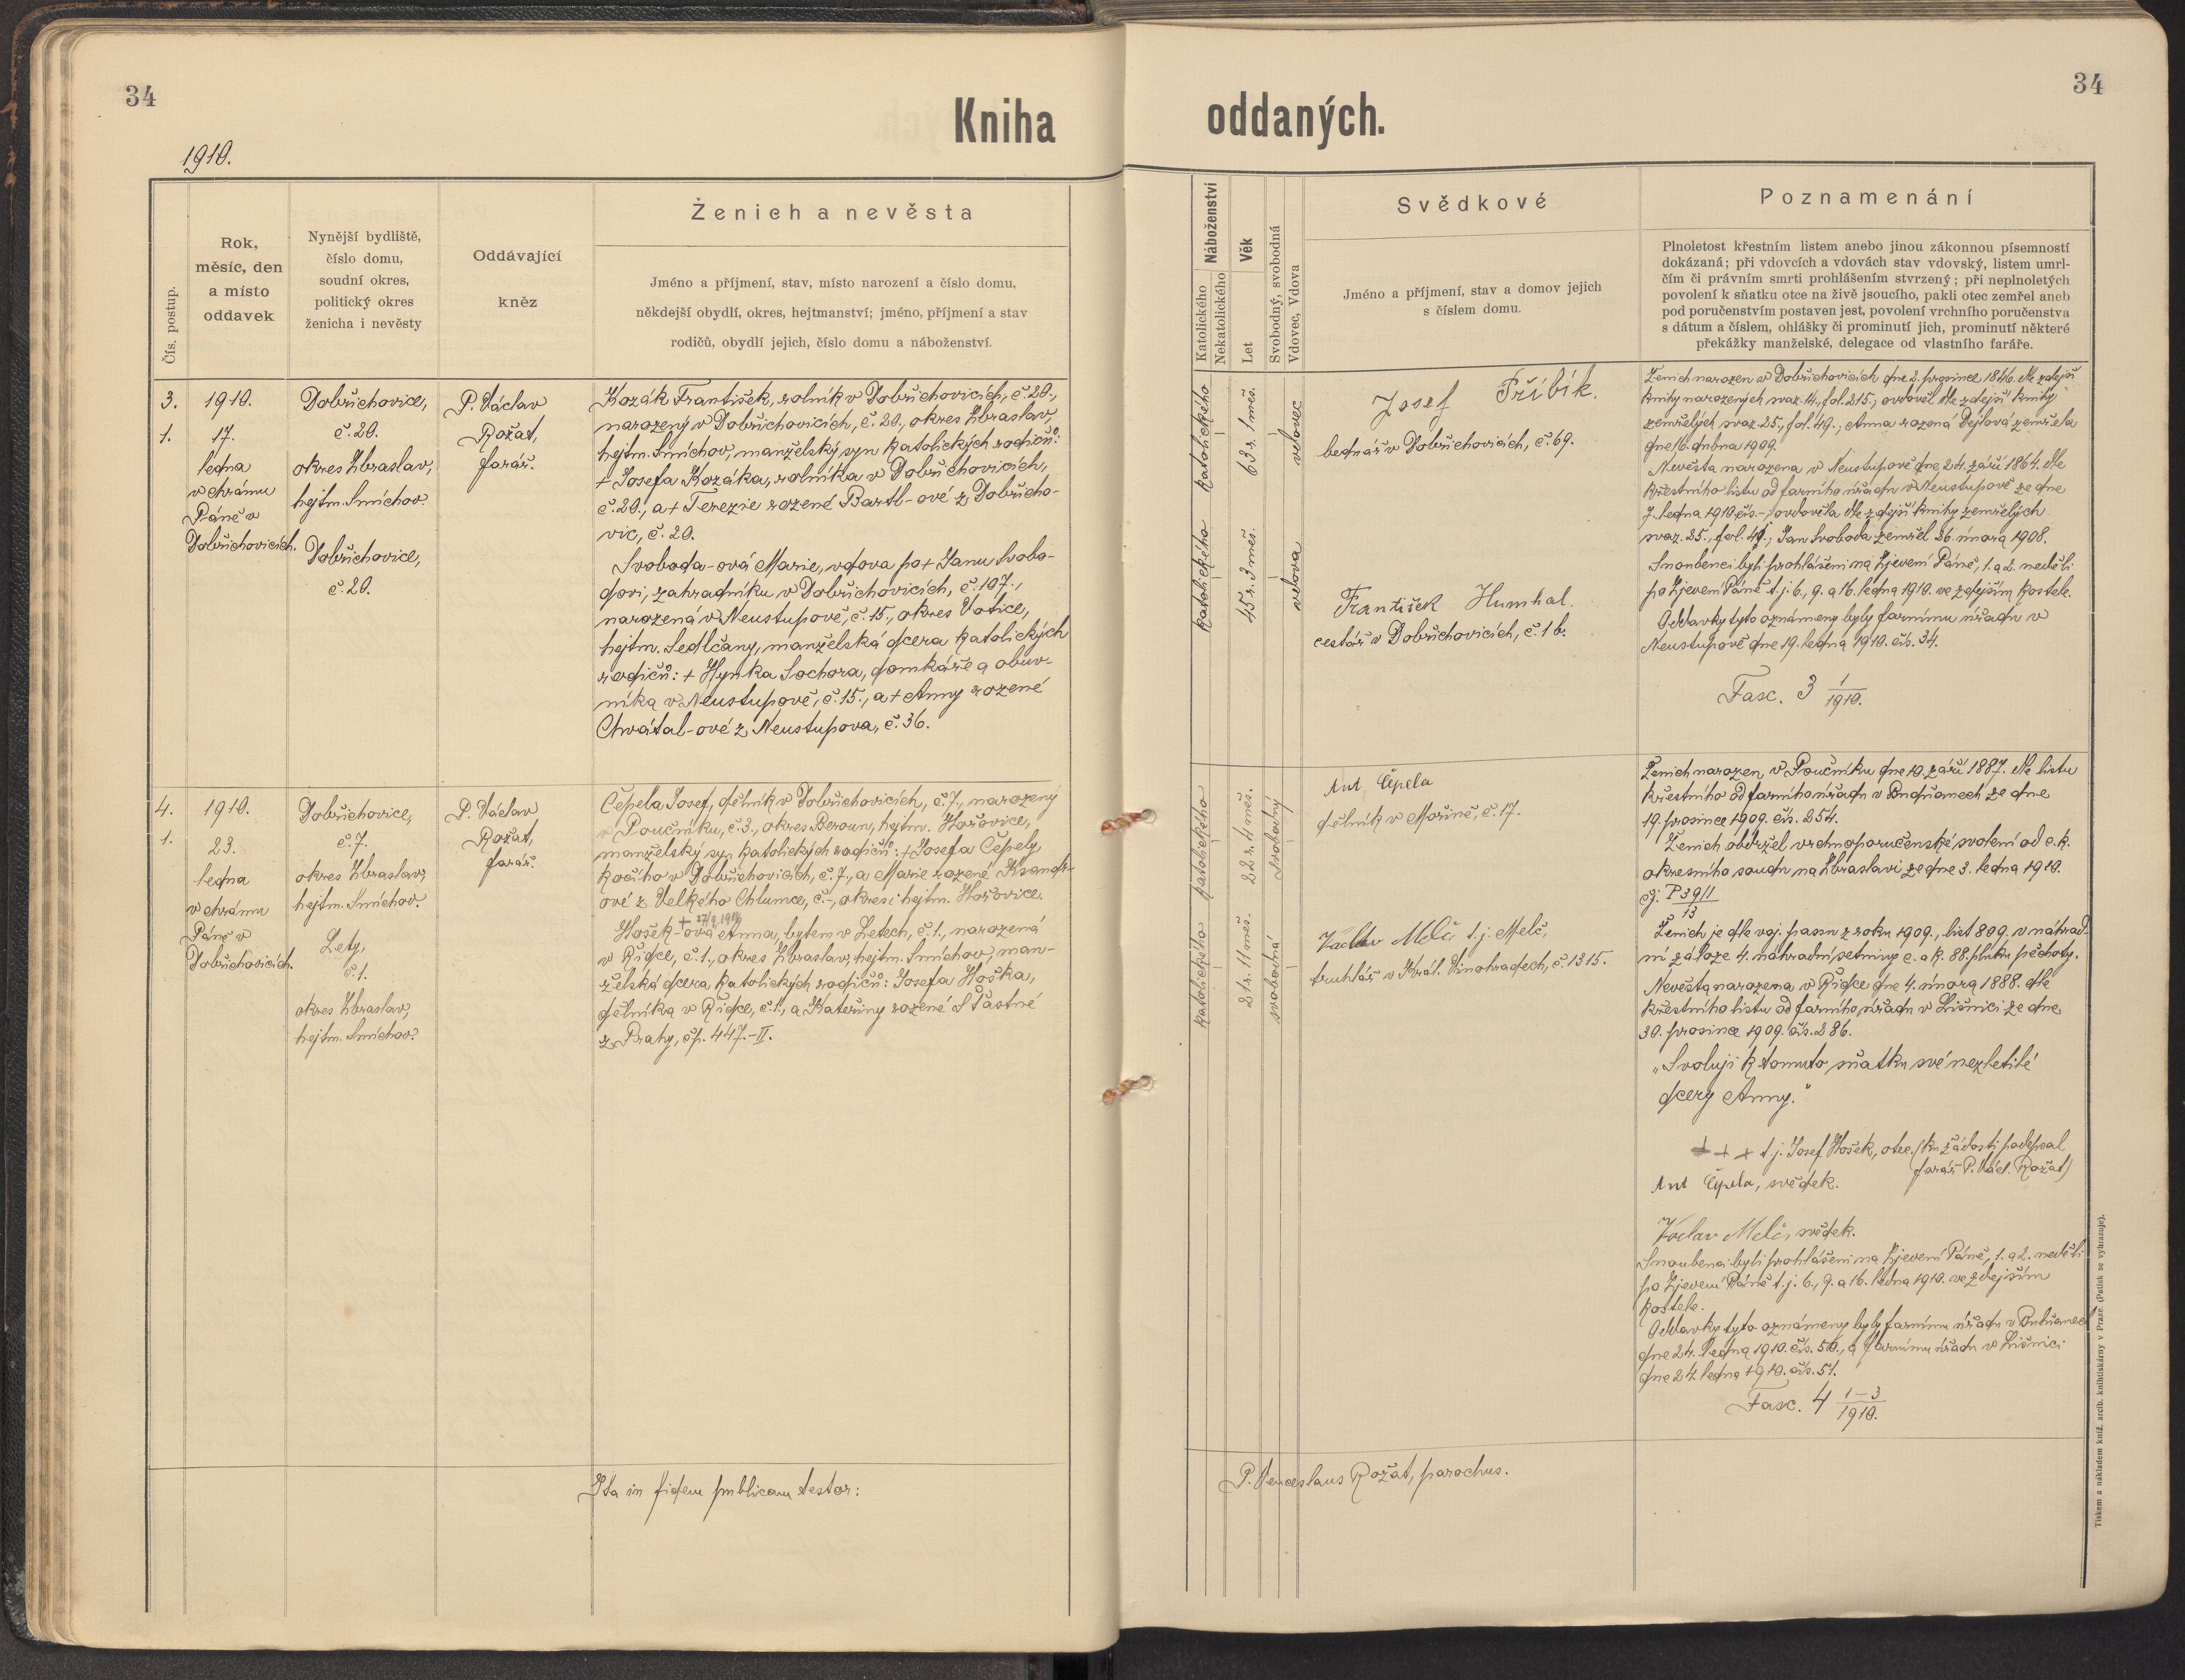 34
Kniha
1910.
Čís. postup.
Rok,
měsíc, den
a místo
oddavek
Nynější bydliště,
číslo domu,
soudní okres,
politický okres
ženicha i nevěsty
Oddávající
kněz
Ženich a nevěsta
Jméno a příjmení, stav, místo narození a číslo domu,
někdejší obydlí, okres, hejtmanství; jméno, příjmení a stav
rodičů, obydlí jejich, číslo domu a náboženství.
3.
1.
1910.
17.
ledna
v chrámu
Páně v
Dobřichovicích.
Dobřichovice,
č. 20.
okres Zbraslav,
hejtm. Smíchov.
Dobřichovice,
č. 20.
P. Václav
Rožat,
farář.
Kozák František, rolník v Dobřichovicích, č. 20.,
narozený v Dobřichovicích, č. 20., okres Zbraslav,
hejtm. Smíchov, manželský syn katolických rodičů:
+ Josefa Kozáka, rolníka v Dobřichovicích,
č. 20., a + Terezie rozené Bartl-ové z Dobřicho-
vic, č. 20.
Svoboda-ová Marie, vdova po + Janu Svobo-
dovi, zahradníku v Dobřichovicích, č. 107.,
narozená v Neustupově, č. 15., okres Votice,
hejtm. Sedlčany, manželská dcera katolických
rodičů: + Hynka Sochora, domkáře a obuv-
níka v Neustupově, č. 15., a + Anny rozené
Chvátal-ové z Neustupova, č. 36.
4.
1.
1910.
23.
ledna
v chrámu
Páně v
Dobřichovicích.
Dobřichovice,
č. 7.
okres Zbraslav,
hejtm. Smíchov.
Lety,
č. 1.
okres Zbraslav,
hejtm. Smíchov.
P. Václav
Rožat,
farář.
Čepela Josef, dělník v Dobřichovicích, č. 7., narozený
v Poučníku, č. 3., okres Beroun, hejtm. Hořovice,
manželský syn katolických rodičů: + Josefa Čepely,
kočího v Dobřichovicích, č. 7., a Marie rozené
ové z Velkého Chlumce, č. -, okres i hejtm. Hořovice.
Hošek-ová Anna, bytem v Letech, č. 1., narozená
v Řidce, č. 1., okres Zbraslav, hejtm. Smíchov, man-
želská dcera katolických rodičů: Josefa Hoška,
dělníka v Řidce, č. 1., a Kateřiny rozené Šťastné
z Prahy, čp. 447.-II.
Ita in fidem publicam testor:
34
oddaných.
Náboženství
Katolického
Nekatolického
Věk
Let
Svobodný, svobodná
Vdovec, Vdova
Svědkové
Jméno a příjmení, stav a domov jejich
s číslem domu.
Poznamenání
Plnoletost křestním listem anebo jinou zákonnou písemností
dokázaná; při vdovcích a vdovách stav vdovský, listem umrl-
čím či právním smrti prohlášením stvrzený; při neplnoletých
povolení k sňatku otce na živě jsoucího, pakli otec zemřel aneb
pod poručenstvím postaven jest, povolení vrchního poručenstva
s dátum a číslem, ohlášky či prominutí jich, prominutí některé
překážky manželské, delegace od vlastního faráře.
katolického
63 r. 1 měs.
vdovec
katolického
45 r. 3 měs.
vdova
Josef Příbík.
bednář v Dobřichovicích, č. 69.
František Humhal.
cestář v Dobřichovicích, č. 16.
Ženich narozen v Dobřichovicích dne 2. prosince 1846. dle zdejší
knihy narozených svaz. 14., fol. 215.; ovdověl dle zdejší knihy
zemřelých svaz. 25., fol. 49., Anna rozená Dejlová zemřela
dne 16. dubna 1909.
Nevěsta narozena v Neustupově dne 24. září 1864. dle
křestního listu od farního úřadu v Neustupově ze dne
7. ledna 1910. čís. -; ovdověla dle zdejší knihy zemřelých
svaz. 25., fol. 41.; Jan Svoboda zemřel 26. února 1908.
Snoubenci byli prohlášeni na Zjevení Páně, 1. a 2. neděli
po Zjevení Páně t. j. 6., 9. a 16. ledna 1910. ve zdejším kostele.
Oddavky tyto oznámeny byly farnímu úřadu v
Neustupově dne 19. ledna 1910. čís. 34.
Fasc. 3 1/1910.
katolického
22 r. 4 měs.
svobodný
katolického
21 r. 11 měs.
svobodná
Ant Čepela
dělník v Mořině, č. 17.
Václav Melč t. j. Melč,
truhlář v Král. Vinohradech, č. 1315.
Ženich narozen v Poučníku dne 10. září 1887. dle listu
křestního od farního úřadu v Budňanech ze dne
19. prosince 1909. čís. 254.
Ženich obdržel vrchnoporučenské svolení od c. k.
okresního soudu na Zbraslavi ze dne 3. ledna 1910.
čj. P 39/1
13
Ženich je dle voj. passu z roku 1909., list 809. v náhrad-
ní záloze 4. náhradní setniny c. a k. 88. pluku pěchoty.
Nevěsta narozena v Řidce dne 4. února 1888. dle
křestního listu od farního úřadu v Líšnici ze dne
30. prosince 1909. čís. 286.
„Svoluji k tomuto sňatku své nezletilé
dcery Anny."
+ + + t. j. Josef Hošek, otec. (ku žádosti podepsal
farář P. Václ. Rožat)
Ant Čepela, svědek.
Václav Melč, svědek.
Snoubenci byli prohlášeni na Zjevení Páně, 1. a 2. neděli
po Zjevení Páně t. j. 6., 9. a 16. ledna 1910. ve zdejším
kostele.
Oddavky tyto oznámeny byly farnímu úřadu v Budňanech
dne 24. ledna 1910. čís. 50., a farnímu úřadu v Líšnici
dne 24. ledna 1910. čís. 51.
Fasc. 4 1-3/1910.
P. Venceslaus Rožat, parochus.
Tiskem a nákladem kníž. arcib. knihtiskárny v Praze. (Patisk se vyhrazuje).